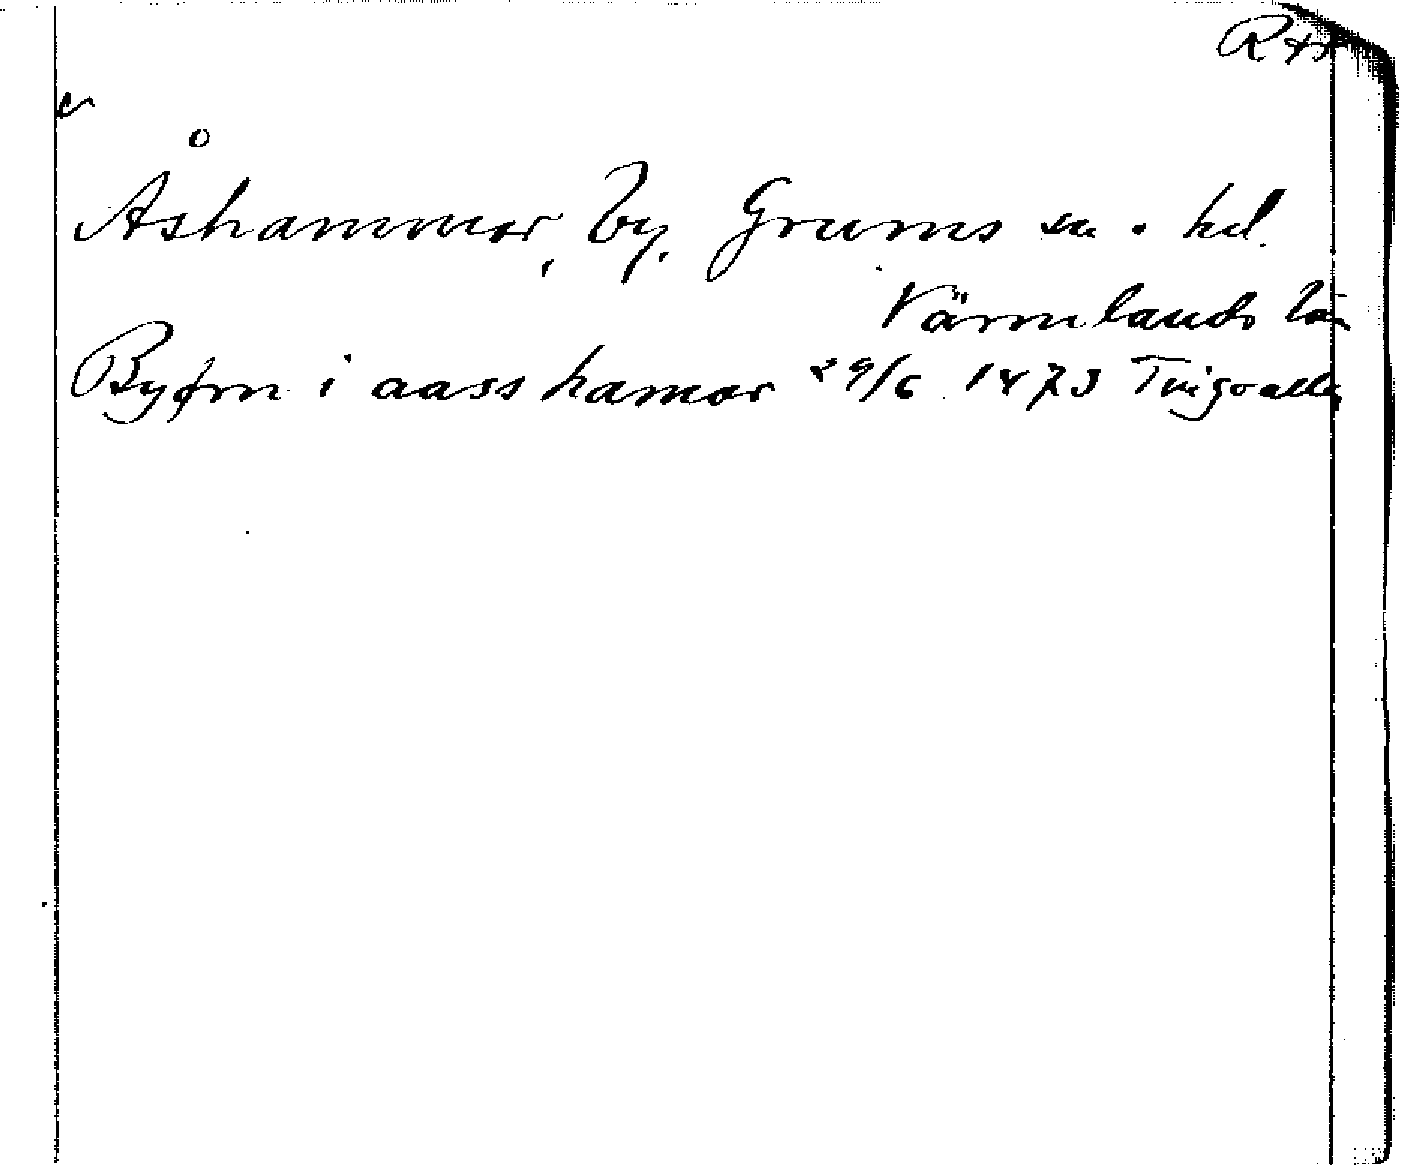 Åshammar, by, Grums sn o. hd.
Värmlands län
Byfrn i aass hamar 29/6 1473 Tingvalla